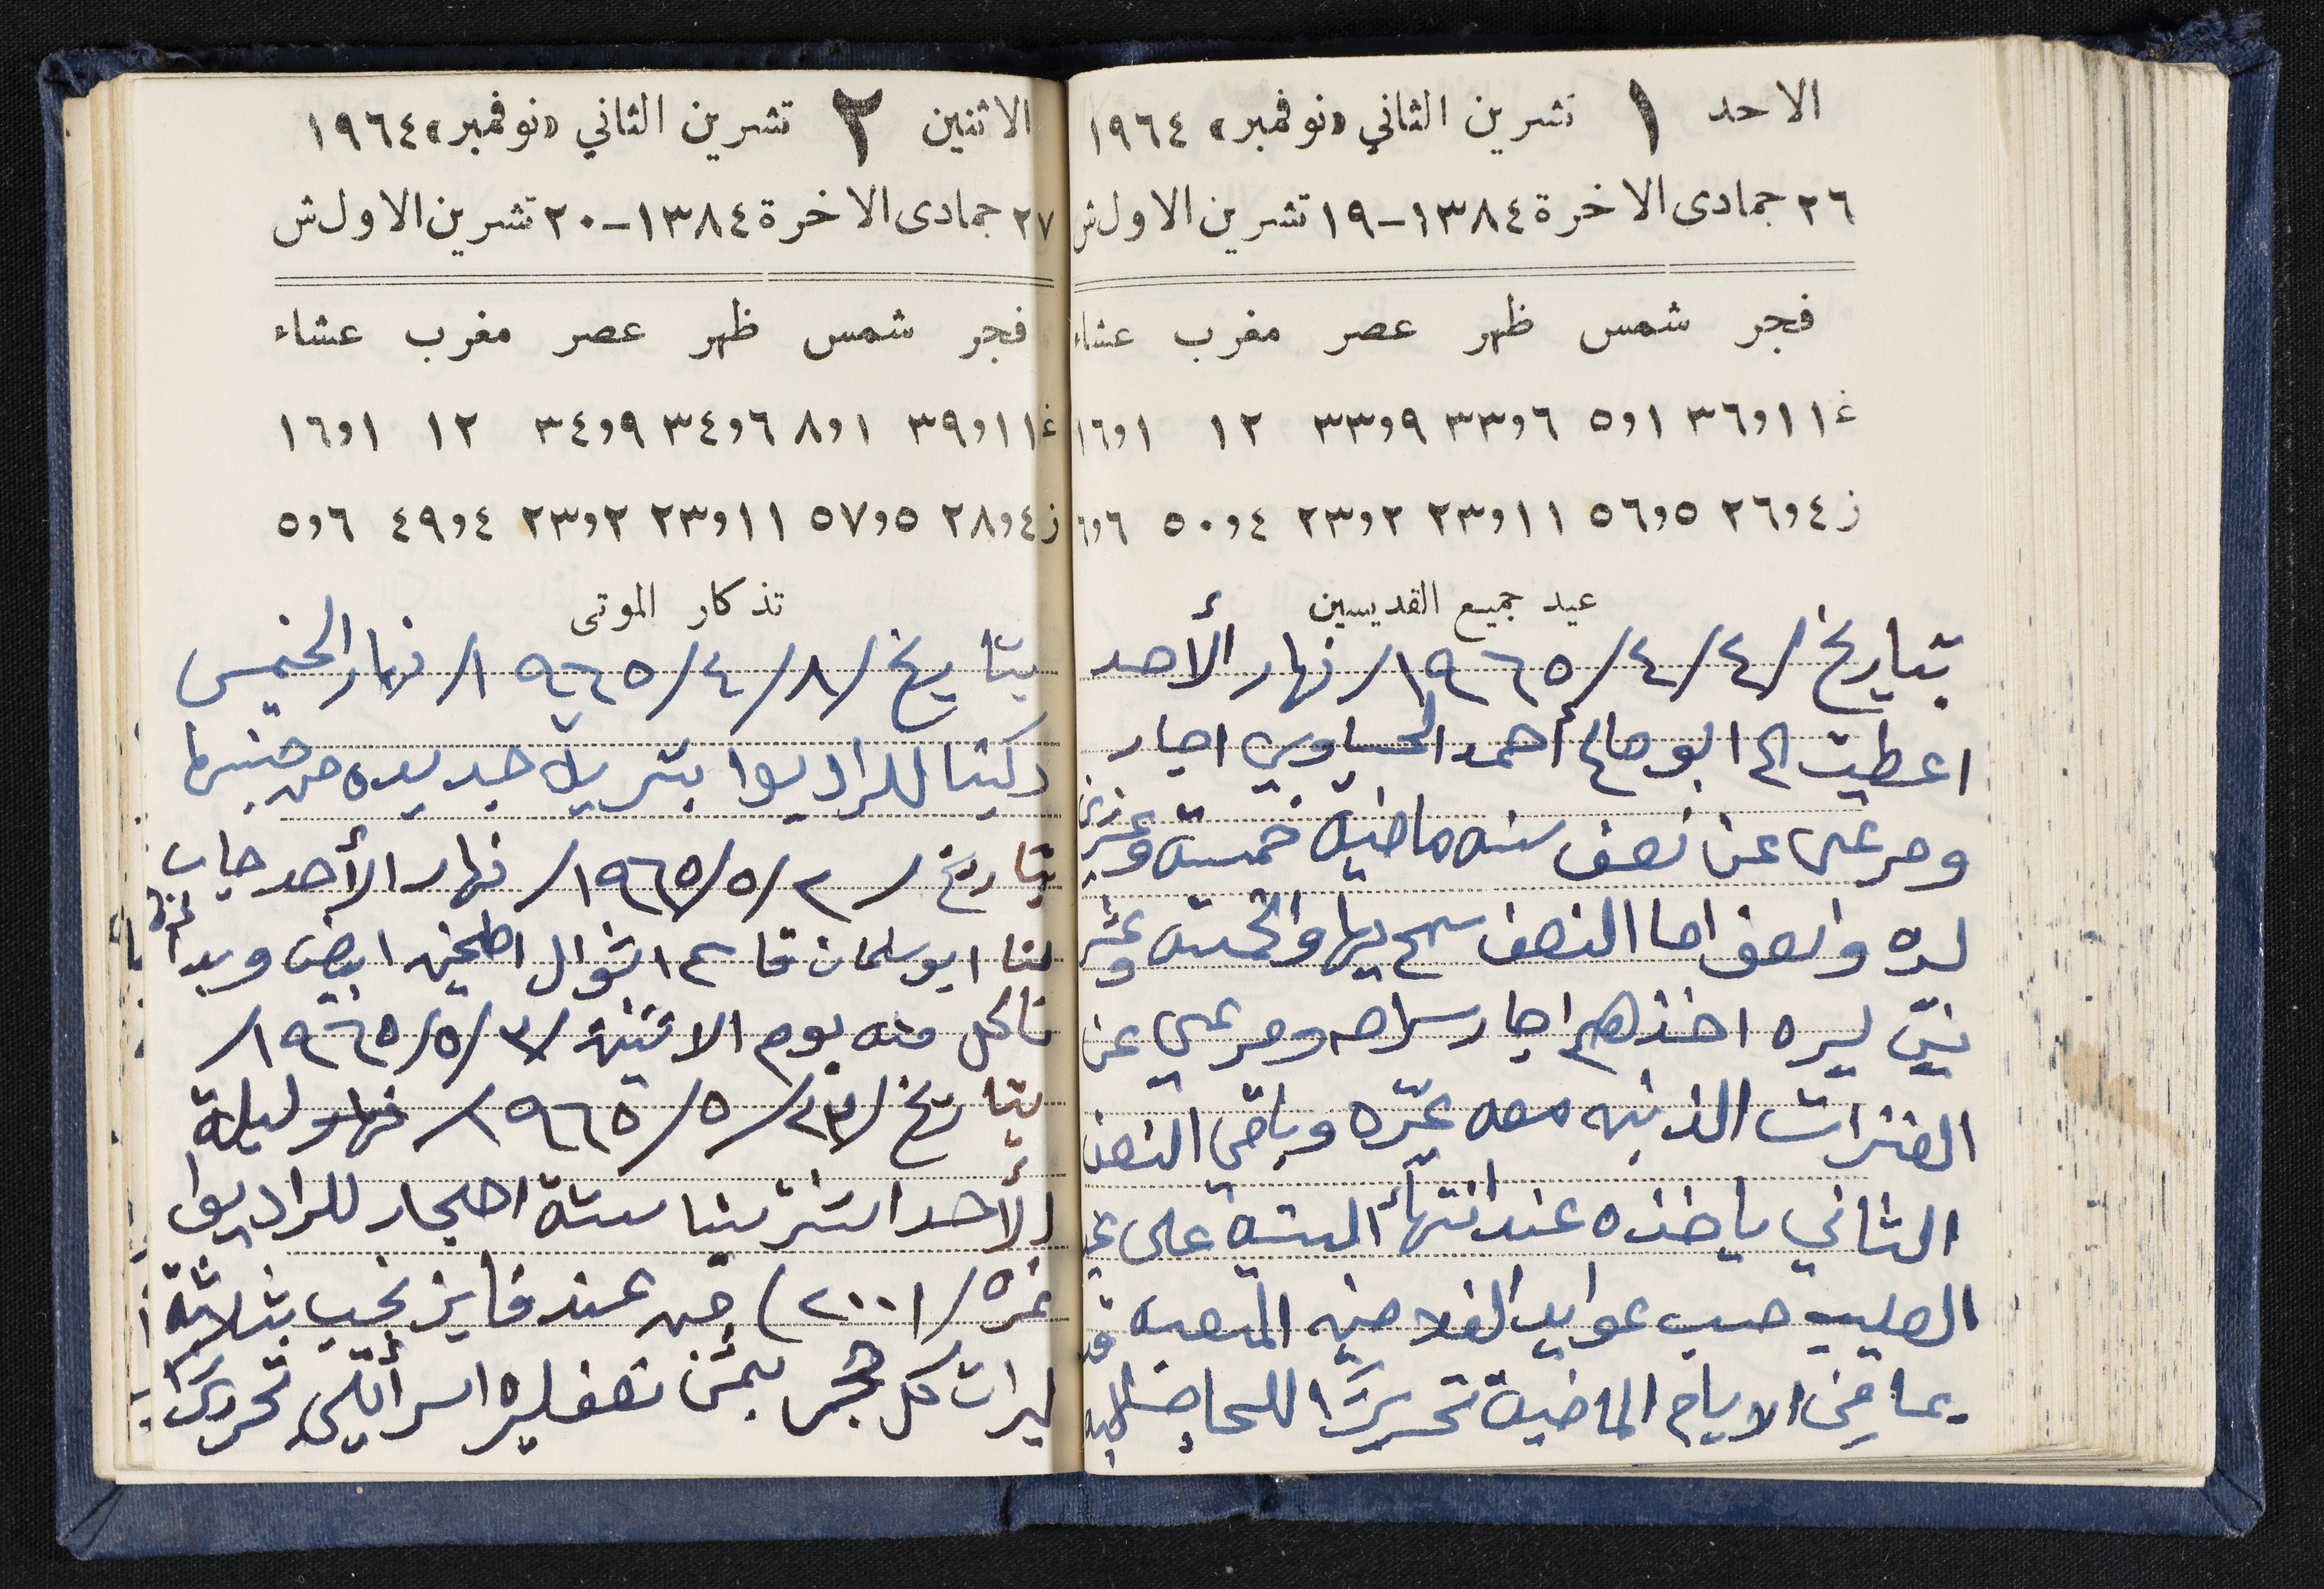 الاحد ١ تشرين الثاني «نوفمبر» ١٩٦٤
٢٦ جمادى الاخرة ١٣٨٤-١٩ تشرين الاول ش
فجر شمس ظهر عصر مغرب عشاء
غ ١١و٣٦ ١و٥ ٦و٣٣ ٩و٣٣ ١٢ ١و١٦
ز ٤و٢٦ ٥و٥٦ ١١و٢٣ ٢و٢٣ ٤و٥٠ ٦و٦
عيد جميع القديسين
بتاريخ /٤/٤/١٩٦٥/ نهار الأحد
اعطيت الى ابو صالح أحمد الحساوي اجار
ومرعى عن نصف سنه ماضية خمسة وعشرين
ليره ونصف اما النصف والخمسه وعشر
ليره اخذهم اجار ومرعى عن
العنزات معه وباقي النصف
الثاني ياخذه عند انتهاء السنة على
الصليب حسب عوايد الفلاحين المتبعه
بما من الايام الماضية تحريرًا للحاجة
الاثنين ٢ تشرين الثاني «نوفمبر» ١٩٦٤
٢٧ جمادى الاخرة ١٣٨٤-٢٠ تشرين الاول ش
فجر شمس ظهر عصر مغرب عشاء
غ ١١و٣٩ ١و٨ ٦و٣٤ ٩و٣٤ ١٢ ١و١٦
ز ٤و٢٨ ٥و٥٧ ١١و٢٣ ٢و٢٣ ٤و٤٩ ٦و٥
تذكار الموتى
بتاريخ /٨/٤/١٩٦٥/ نهار الخميس
ركبنا للراديوا بترية جديده من
بتاريخ /٢/٥/١٩٦٥/ نهار الأحد جاب
لنا ابو سلمان قاسم اشوال اطحين ابيض وبدانا
ناكل منه يوم الاثنين /٣/٥/١٩٦٥/
بتاريخ /٢٣/٥/١٩٦٥/ نهار ليلة
الأحد اشترينا ستة احجار للراديوا
نمره /٢٠٠١) من عند فايز نجيب بثلاثة
ليرات كل حجر بثمن نصف ليره اسرائيلي تحريرًا